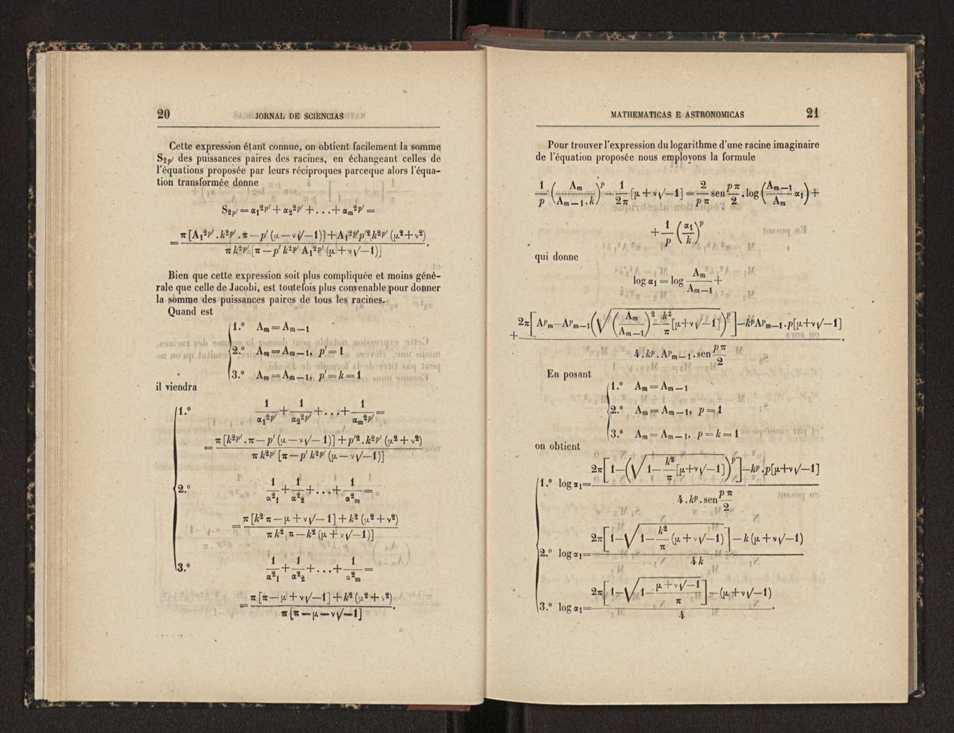 20 JORNAL DE SCIENCIAS
Cette expression étant connue, on obtient facilement la somme
S₂ₚ′ des puissances paires des racines, en échangeant celles de
l'équations proposée par leurs réciproques parceque alors l'équa-
tion transformée donne
S₂ₚ′ = α₁²ᵖ′ + α₂²ᵖ′ + ... + αₘ²ᵖ′ =
= π[A₁²ᵖ′.k²ᵖ′.π — p′(μ — ν√—1)] + A₁²ᵖ′p′²k²ᵖ′(μ² + ν²)
πk²ᵖ′[π — p′k²ᵖ′A₁²ᵖ′(μ + ν√—1)] .
Bien que cette expression soit plus compliquée et moins géné-
rale que celle de Jacobi, est toutefois plus convenable pour donner
la somme des puissances paires de tous les racines.
Quand est
1.º Aₘ = Aₘ₋₁
2.º Aₘ = Aₘ₋₁, p′ = 1
3.º Aₘ = Aₘ₋₁, p′ = k = 1
il viendra
1.º 1/α₁²ᵖ′ + 1/α₂²ᵖ′ + ... + 1/αₘ²ᵖ′ =
= π[k²ᵖ′.π — p′(μ — ν√—1)] + p′².k²ᵖ′(μ² + ν²)
πk²ᵖ′[π — p′k²ᵖ′(μ — ν√—1)]
2.º 1/α²₁ + 1/α²₂ + ... + 1/α²ₘ =
= π[k²π — μ + ν√—1] + k²(μ² + ν²)
πk²[π — k²(μ + ν√—1)]
3.º 1/α²₁ + 1/α²₂ + ... + 1/α²ₘ =
= π[π — μ + ν√—1] + k²(μ² + ν²)
π[π — μ — ν√—1] .
MATHEMATICAS E ASTRONOMICAS 21
Pour trouver l'expression du logarithme d'une racine imaginaire
de l'équation proposée nous employons la formule
1/p (Aₘ/Aₘ₋₁.k)ᵖ — 1/2π [μ + ν√—1] = 2/pπ sen pπ/2 . log(Aₘ₋₁/Aₘ α₁) +
+ 1/p (α₁/k)ᵖ
qui donne
log α₁ = log Aₘ/Aₘ₋₁ +
2π[Aᵖₘ — Aᵖₘ₋₁(√(Aₘ/Aₘ₋₁)² — k²/π[μ + ν√—1])ᵖ] — kᵖAᵖₘ₋₁.p[μ + ν√—1]
+ 4.kᵖ.Aᵖₘ₋₁.sen pπ/2 .
En posant
1.º Aₘ = Aₘ₋₁
2.º Aₘ = Aₘ₋₁, p = 1
3.º Aₘ = Aₘ₋₁, p = k = 1
on obtient
1.º log α₁ = 2π[1 — (√1 — k²/π[μ + ν√—1])ᵖ] — kᵖ.p[μ + ν√—1]
4.kᵖ.sen pπ/2
2.º log α₁ = 2π[1 — √1 — k²/π(μ + ν√—1)] — k(μ + ν√—1)
4k
3.º log α₁ = 2π[1 — √1 — μ + ν√—1/π] — (μ + ν√—1)
4 .